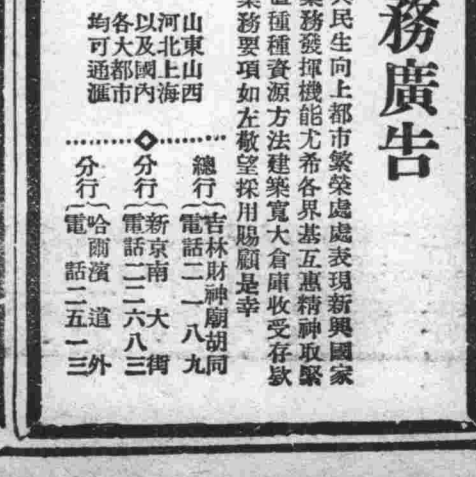 務廣告
民生向上都市繁榮處處表現新興國家
業務發揮機能尤希各界基互惠精神取緊
種種資源方法建築寬大倉庫收受存欵
業務要項如左敬望採用賜顧是幸
山東山西
河北上海
以及國內
各大都市
均可通滙
總行
吉林財神廟胡同
電話二一八九
分行
新京南大街
電話二二六八三
分行
哈爾濱道外
電話二五一三